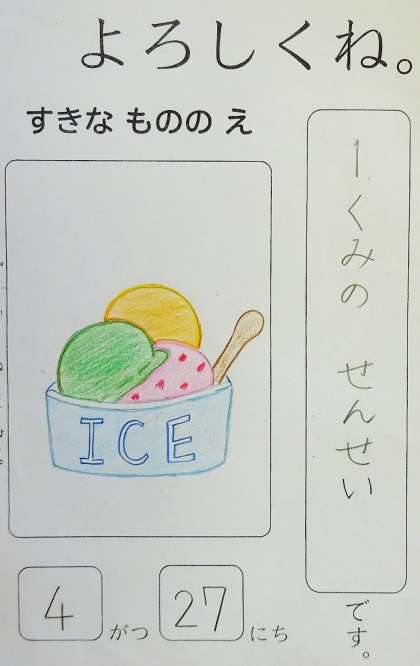 よろしくね。
すきな ものの え
ICE
1くみの せんせい
です。
4 がつ 27 にち